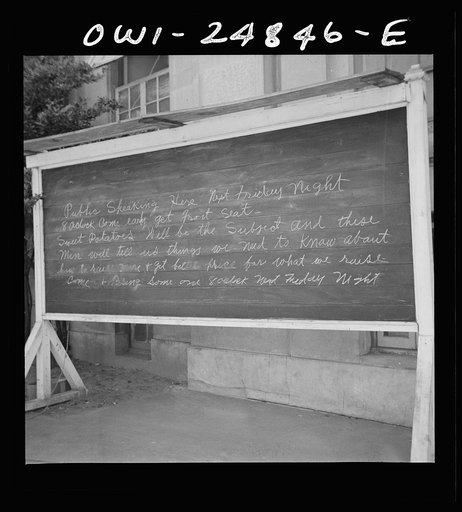 OWI-24846-E
Public Speaking Here Next Friday Night
8 oclock Come early get front Seat-
Sweet Potatoes Will be the Subject and these
Men will tell us things we Need to Know about
how to raise more & get better Price for what we raise
Come & Bring Some one 8 oclock Next Friday Night